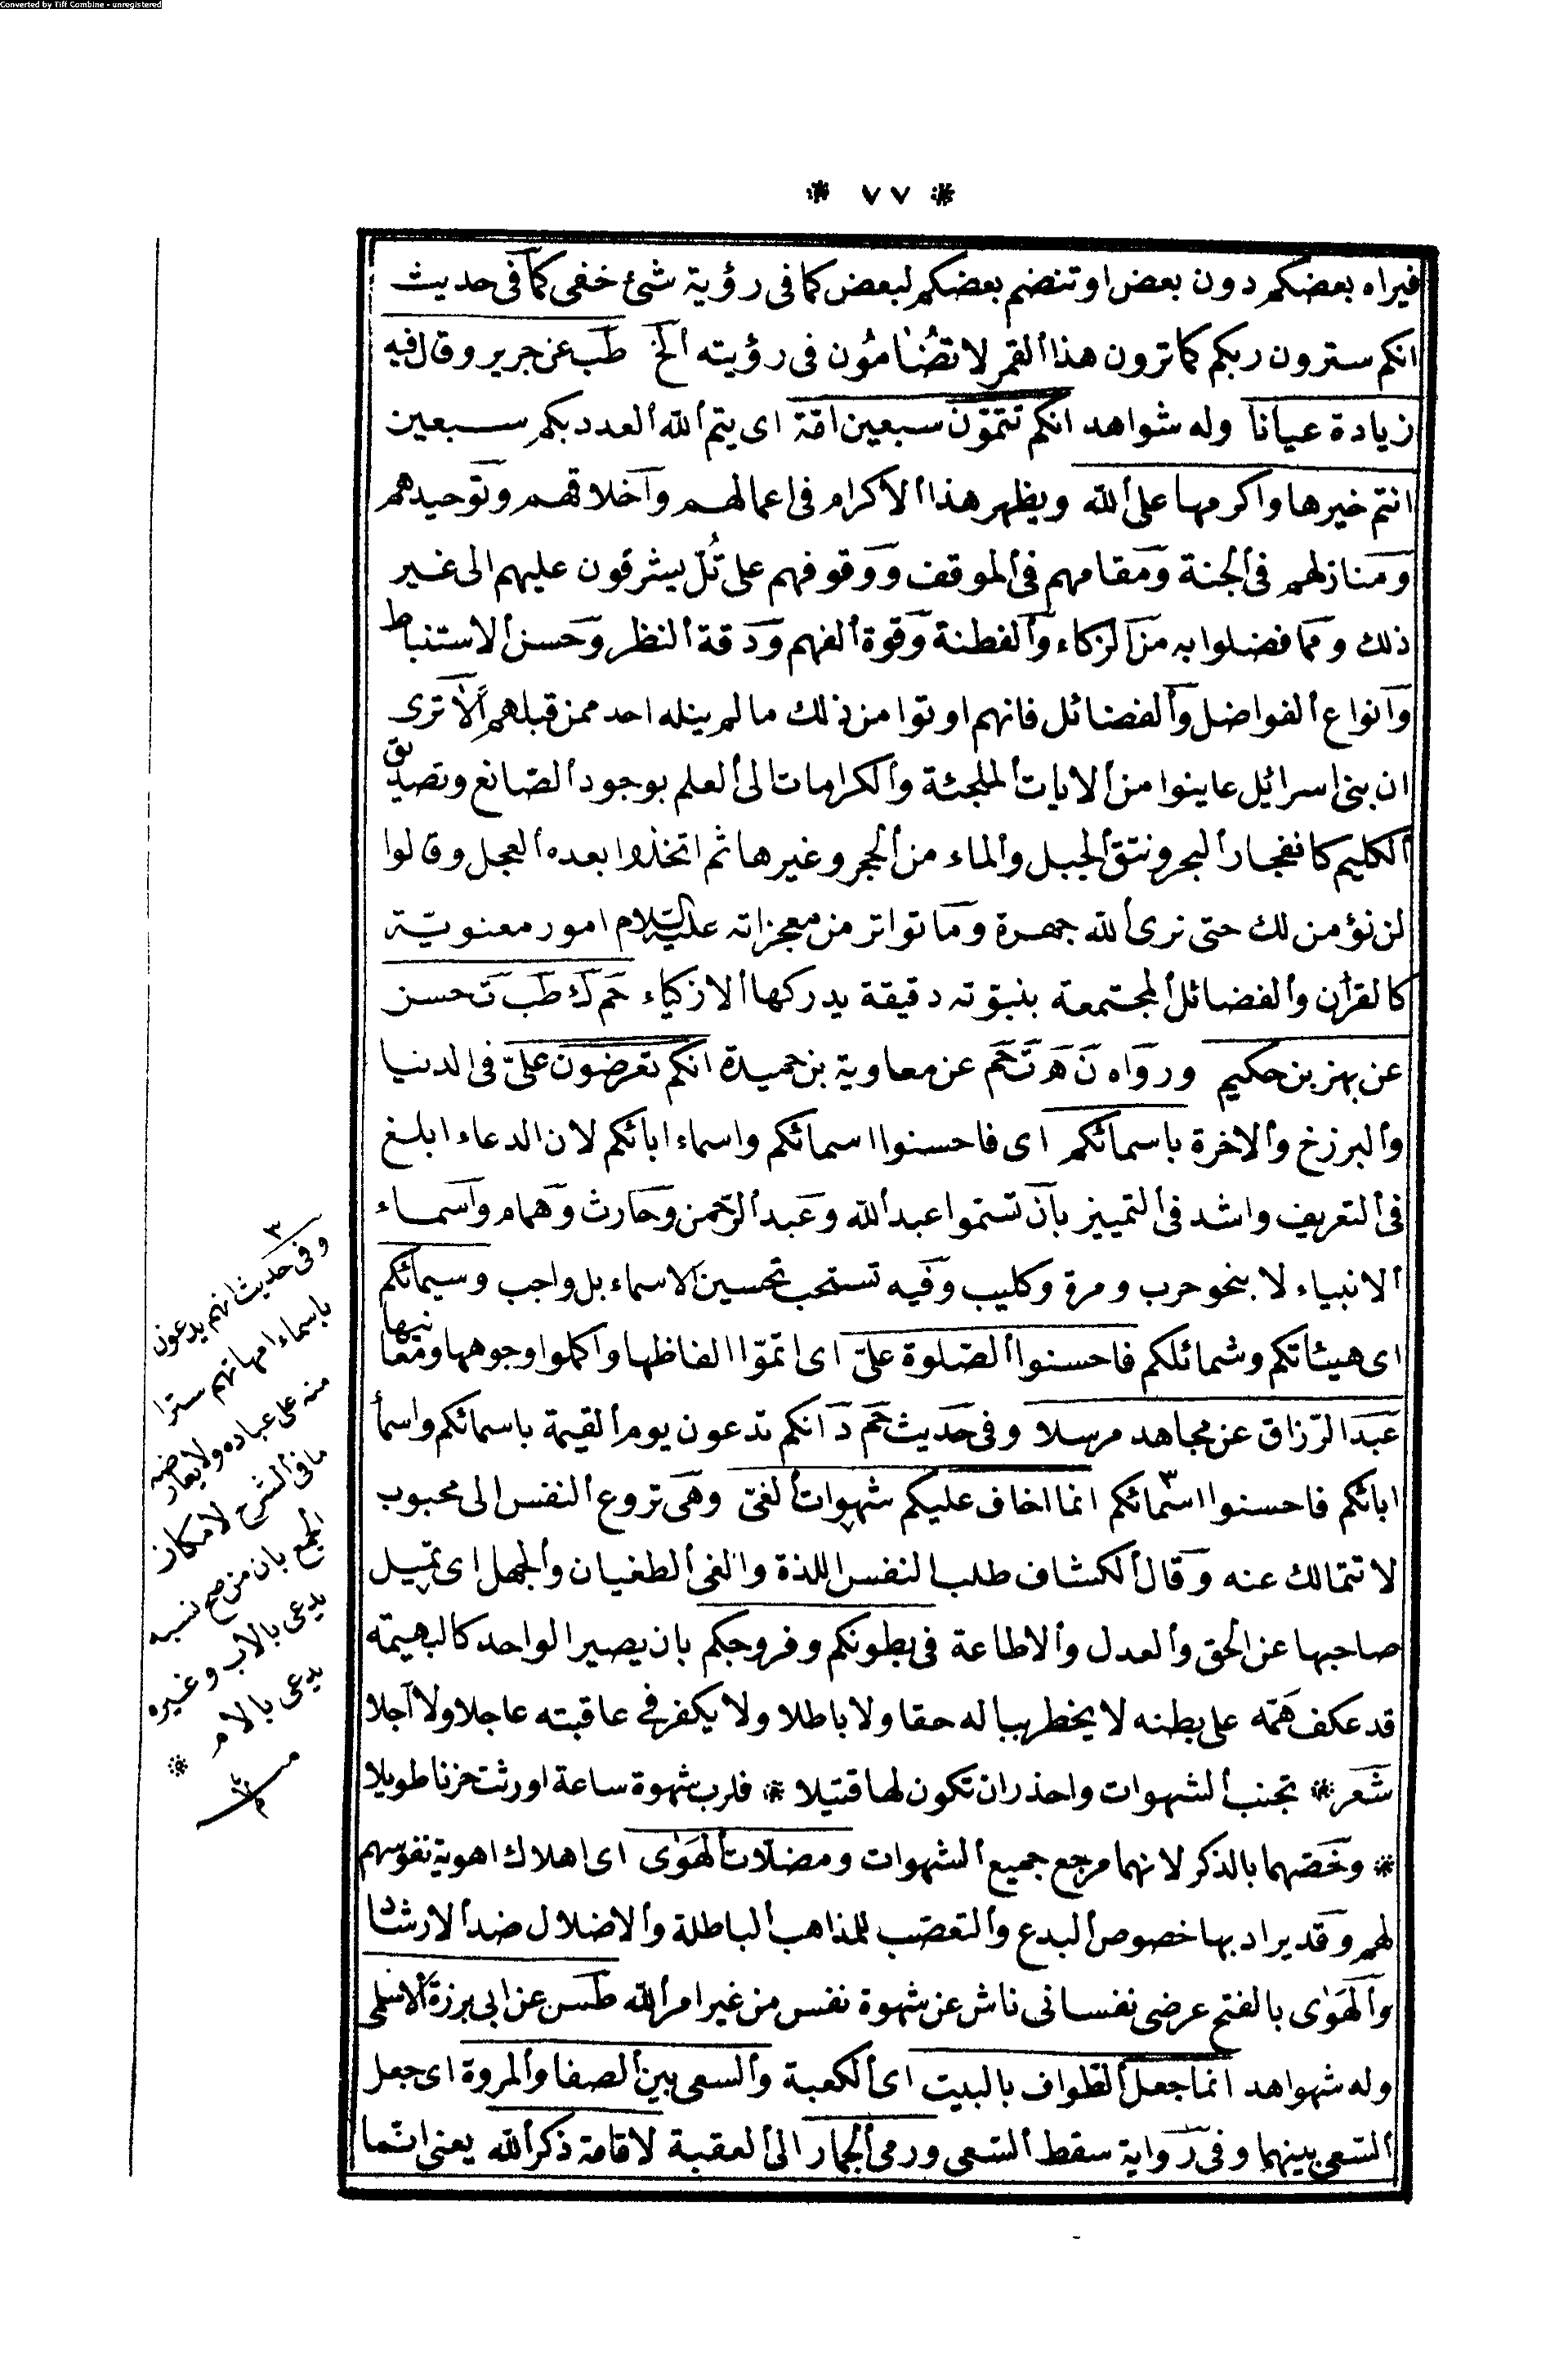 Converted by Tiff Combine - unregistered
* ٧٧ *
فيراه بعضكم دون بعض او تنضم بعضكم لبعض كما فى رؤية شئ خفى كما فى حديث
انكم سترون ربكم كما ترون هذا القمر لا تضامون فى رؤيته الخ طب عن جرير وقال فيه
زيادة عيانا وله شواهد انكم تتمون سبعين امّة اى يتم الله العدد بكم سبعين
انتم خيرها واكرمها على الله ويظهر هذا الاكرام فى اعمالهم واخلاقهم وتوحيدهم
ومنازلهم فى الجنة ومقامهم فى الموقف ووقوفهم على تلّ يشرفون عليهم الى غير
ذلك ومما فضلوا به من الزكاء والفطنة وقوة الفهم ودقة النظر وحسن الاستنباط
وانواع الفواضل والفضائل فانهم اوتوا من ذلك ما لم ينله احد ممن قبلهم ألا ترى
ان بنى اسرائيل عاينوا من الايات الملجئة والكرامات الى العلم بوجود الصّانع وتصديق
الكليم كانفجار البحر ونتق الجبل والماء من الحجر وغيرها ثم اتخذوا بعده العجل وقالوا
لن نؤمن لك حتى نرى الله جهرة وما تواتر من معجزاته عليه السلام امور معنويّة
كالقرأن والفضائل المجتمعة بنبوّته دقيقة يدركها الازكياء حم ك طب ت حسن
عن بهز بن حكيم ورواه ن ه ت حم عن معاوية بن حميدة انكم تعرضون علىّ فى الدنيا
والبرزخ والاخرة باسمائكم اى فاحسنوا اسمائكم واسماء ابائكم لان الدعاء ابلغ
فى التعريف واشد فى التمييز بان تستموا عبد الله وعبد الرّحمن وحارث وهمام واسماء
الانبياء لا بنحو حرب ومرة وكليب وفيه تستحب تحسين الاسماء بل واجب وسيمائكم
اى هيئاتكم وشمائلكم فاحسنوا الصّلوة علىّ اى اتمّوا الفاظها واكملوا وجوهها ومعانيها
عبد الرّزاق عن مجاهد مرسلا وفى حديث حم د انكم تدعون يوم القيمة باسمائكم واسمأ
ابائكم فاحسنوا اسمائكم ٣ انما اخاف عليكم شهوات الغىّ وهى تروع النفس الى محبوب
لا تتمالك عنه وقال الكشاف طلب النفس اللذة والغى الطغيان والجهل اى تميل
صاحبها عن الحق والعدل والاطاعة فى بطونكم وفروجكم بان يصير الواحد كالبهيمة
قد عكف همّه على بطنه لا يخطر بباله حقا ولا باطلا ولا يكفر فى عاقبته عاجلا ولا آجلا
شعر * تجنب الشهوات واحذر ان تكون لها قتيلا * فلرب شهوة ساعة اورثت حزنا طويلا
* وخصّهما بالذكر لانهما مرجع جميع الشهوات ومضلّات الهوى اى اهلاك اهوية نفوسهم
لهم وقد يراد بها خصوص البدع والتعصّب للمذاهب الباطلة والاضلال ضد الارشاد
والهوى بالفتح عرضى نفسانى ناش عن شهوة نفس من غير امر الله طس عن ابى برزة الاسلمى
وله شهواهد انما جعل الطّواف بالبيت اى الكعبة والسعى بين الصفا والمروة اى جعل
السّعى بينهما وفى رواية سقط السّعى ورمى الجمار الى العقبة لاقامة ذكر الله يعنى انّما
٣
وفى حديث انهم يدعون
باسماء امهاتهم سترا
منه على عباده ولا يعارضه
ما فى الشرح لامكان
الجمع بان من صح نسبه
يدعى بالاب وغيره
يدعى بالام *